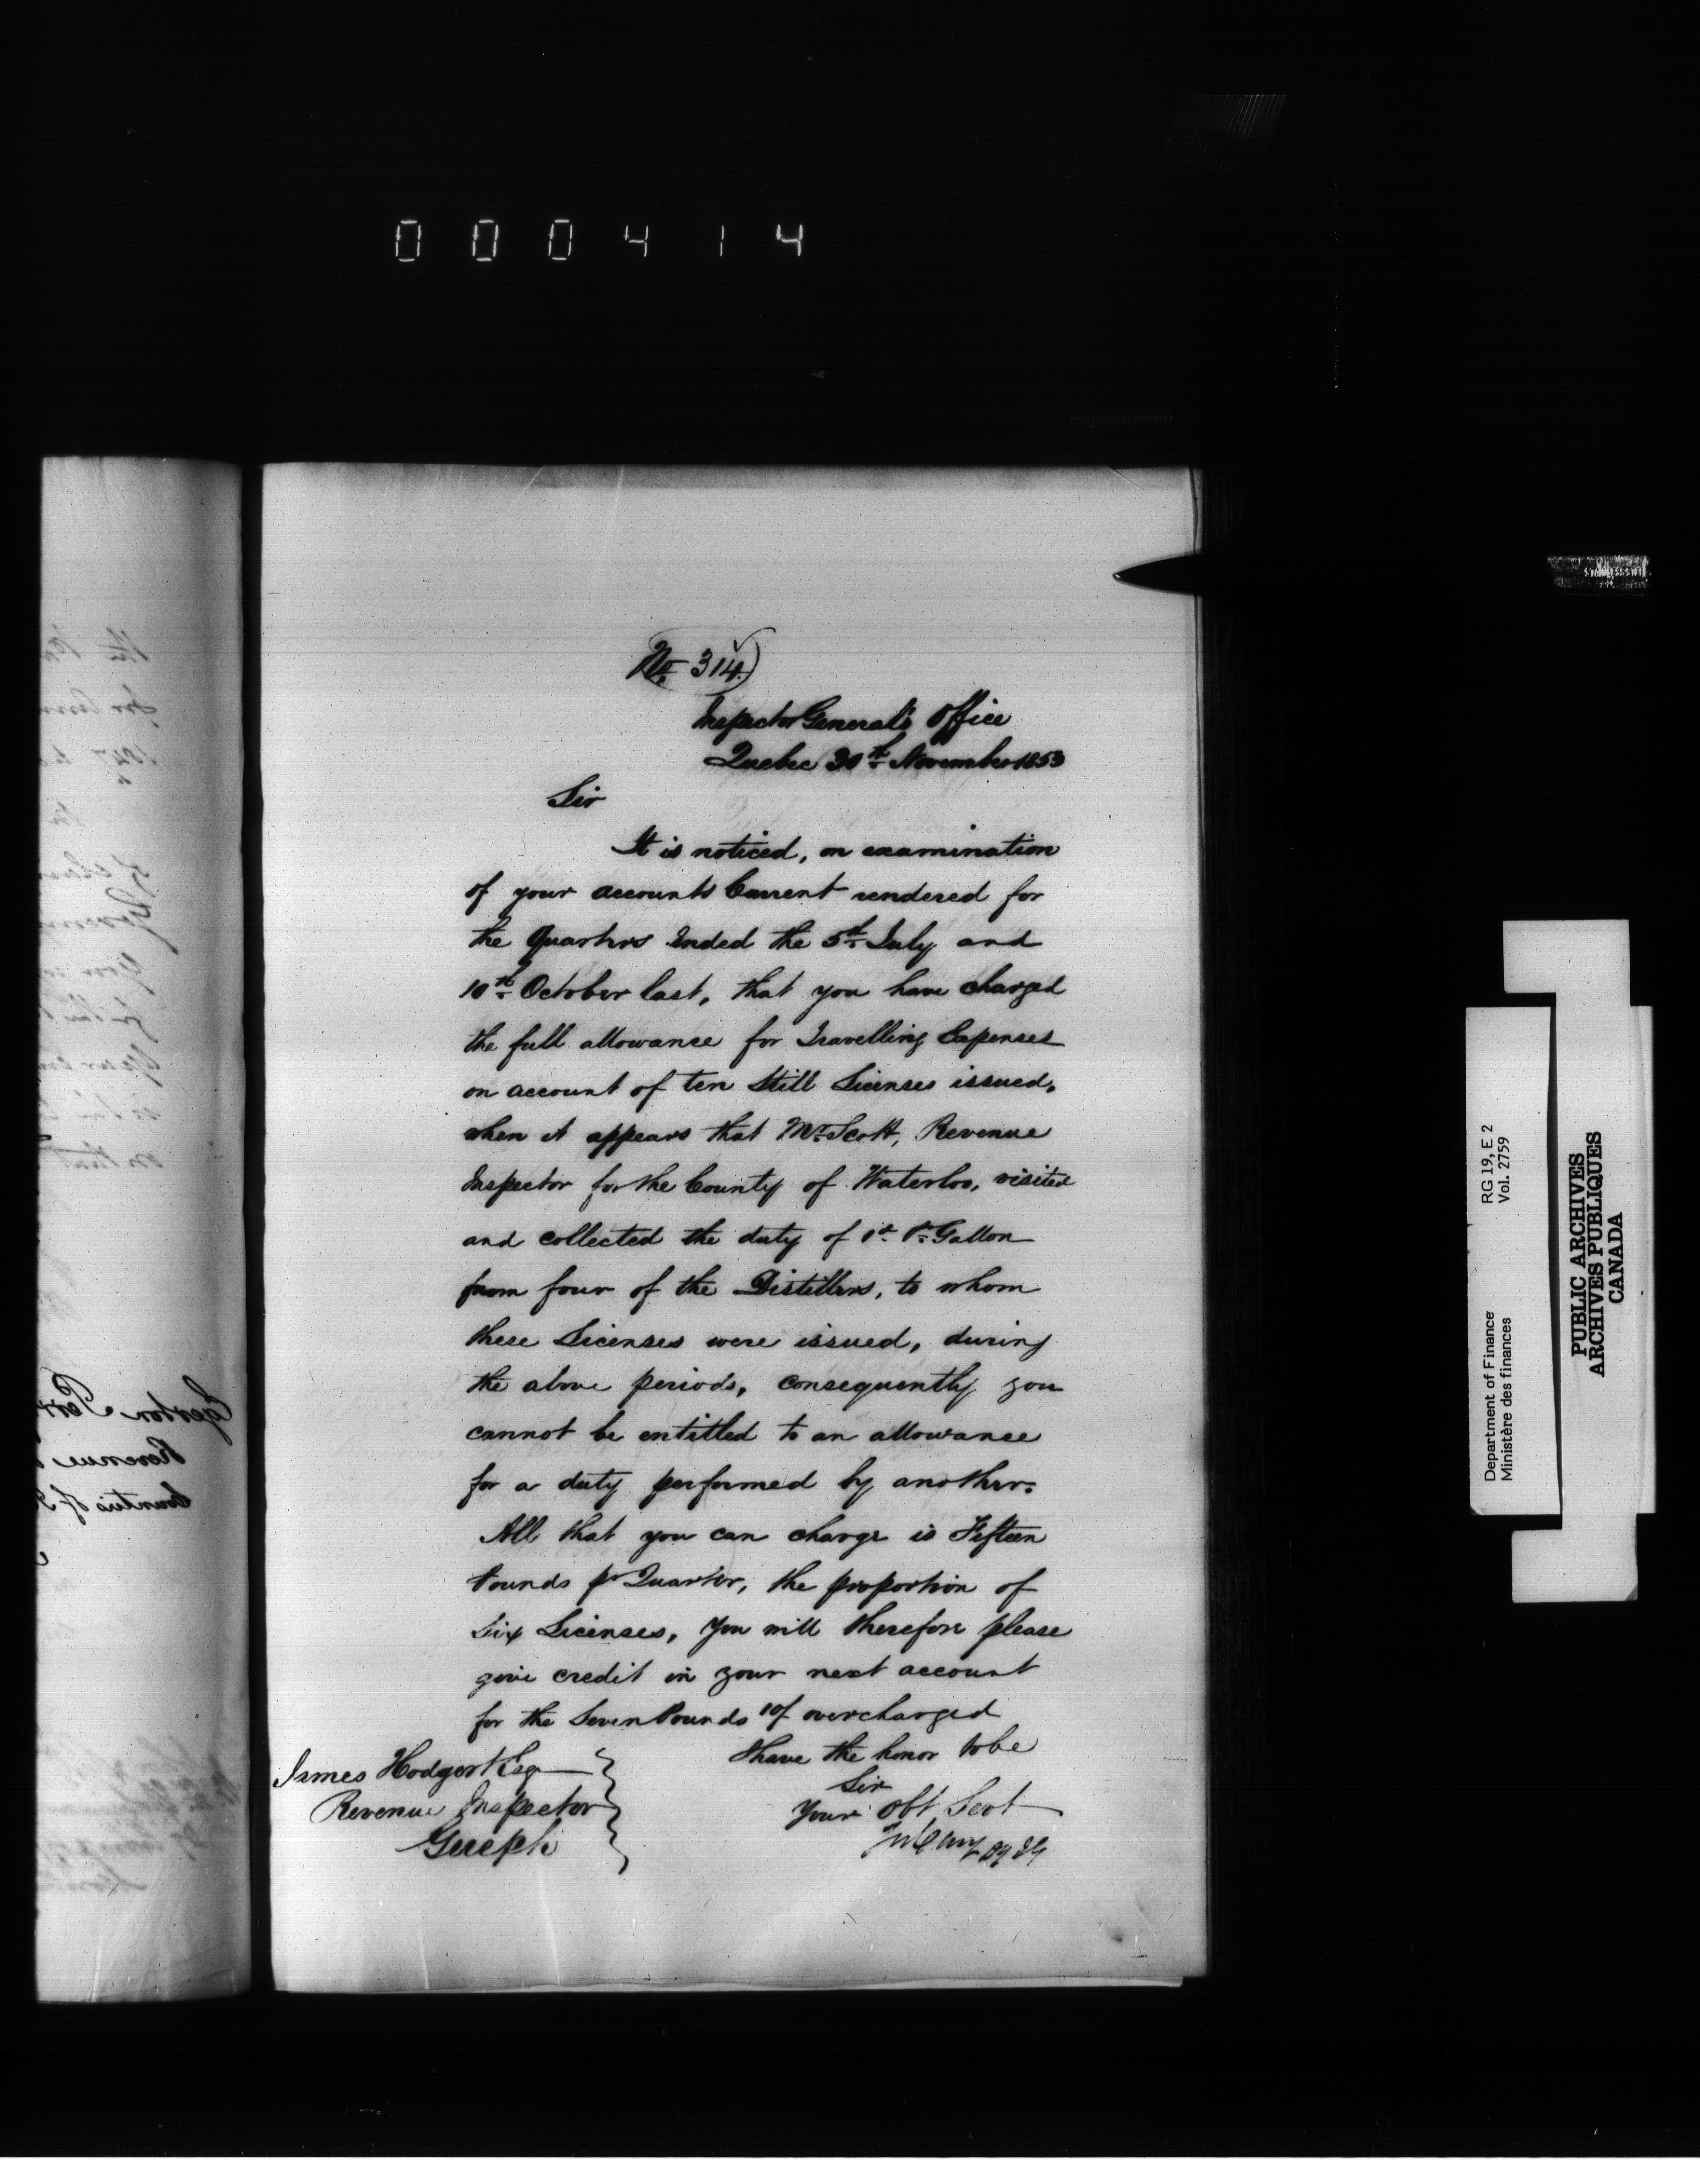 000414
No. 314.
Inspector General's Office
Quebec 30th November 1853
Sir
It is noticed, on examination
of your accounts Current rendered for
the Quarters Ended the 5th July and
10th October last, that you have charged
the full allowance for Travelling Expenses
on account of ten Still Licenses issued,
when it appears that Mr Scott, Revenue
Inspector for the County of Waterloo, visited
and collected the duty of 1d. Pr Gallon
from four of the Distillers, to whom
these Licenses were issued, during
the above periods, consequently you
cannot be entitled to an allowance
for a duty performed by another.
All that you can charge is Fifteen
Pounds pr Quarter, the proportion of
Six Licenses, You will therefore please
give credit in your next account
for the Seven Pounds 10/ overcharged
I have the honor to be
Sir
Your Obt Servt
James Hodgert Esq
Revenue Inspector
Guelph
Egerton
Revenue
Counties of
RG 19, E 2
Vol. 2759
Department of Finance
Ministère des finances
PUBLIC ARCHIVES
ARCHIVES PUBLIQUES
CANADA